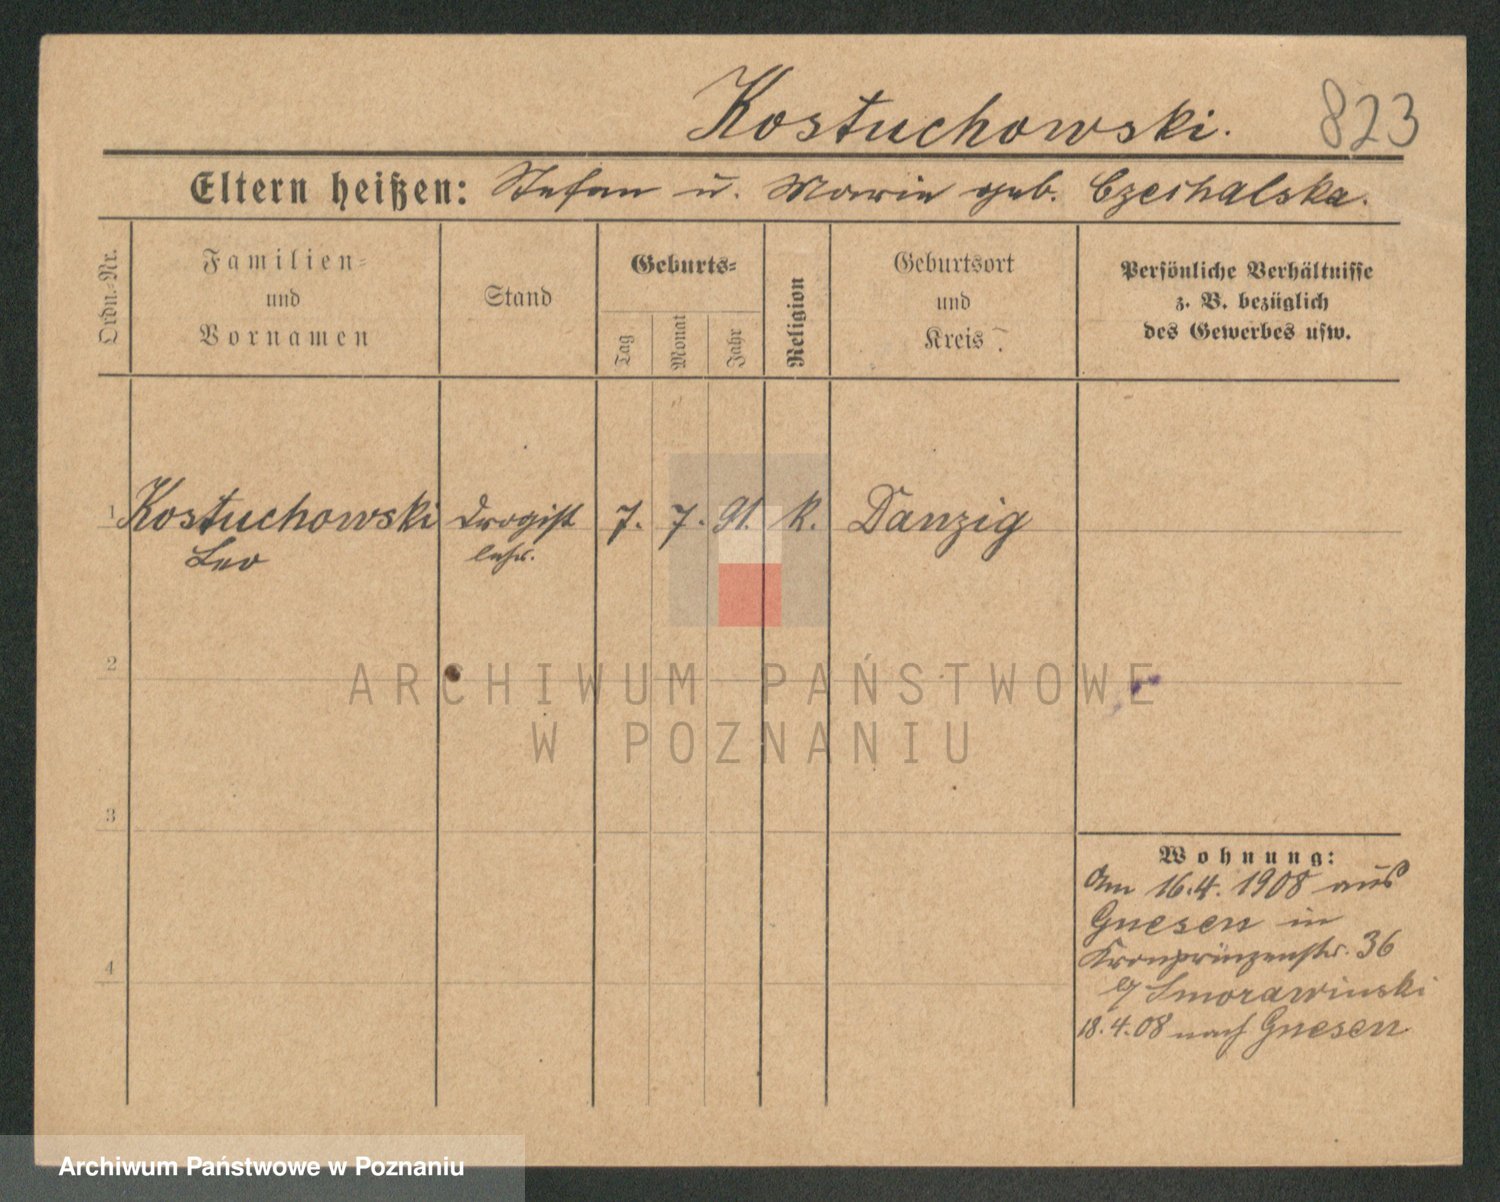 Kostuchowski. 823
Eltern heißen: Stefan u. Marie geb. Czechalska.
Ordn.-Nr.
Familien-
und
Vornamen
Stand
Geburts-
Tag
Monat
Jahr
Religion
Geburtsort
und
Kreis
Persönliche Verhältnisse
z. B. bezüglich
des Gewerbes usw.
1 Kostuchowski Drogist 7. 7. 91. k. Danzig
Leo lehr.
2
3
4
Wohnung:
Am 16.4. 1908 aus
Gnesen in
Kronprinzenstr. 36
b/ Smorawinski
18.4.08 nach Gnesen
ARCHIWUM PAŃSTWOWE
W POZNANIU
Archiwum Państwowe w Poznaniu